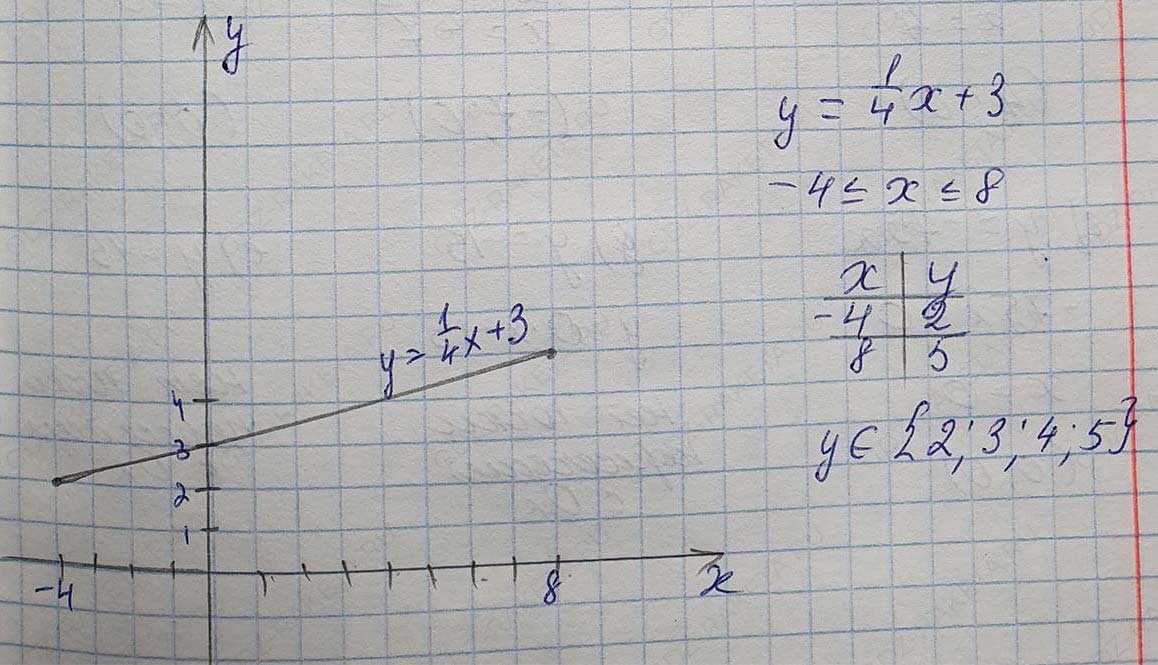 y
y = 1/4 x + 3
-4 ≤ x ≤ 8
x | y
-4 | 2
8 | 5
y = 1/4 x + 3
4
3
2
1
y ∈ {2; 3; 4; 5}
-4
8
x